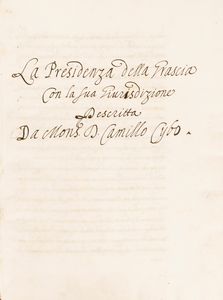 La Presidenza della Grascia
Con la sua Giurisdizione
Descritta
Da Mons.r D. Camillo Cybo.